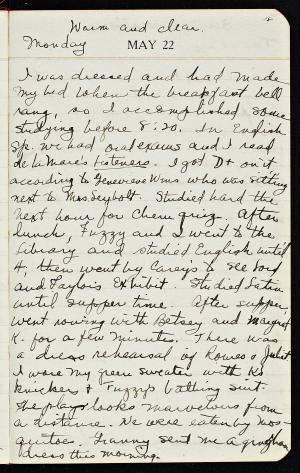 Warm and clear.
Monday MAY 22
I was dressed and had made
my bed when the breakfast bell
rang, so I accomplished some
studying before 8:20. In English
Sp. we had oral exams and I read
de la Mare's Listeners. I got D+ on it
according to Genevieve Wms who was sitting
next to Mrs Seybolt. Studied hard the
next hour for Chem quiz. After
lunch, Fuzzy and I went to the
library and studied English until
4, then went by Carey's to see Ford
and Taylor's Exhibit. Studied Latin
until supper time. After supper,
went rowing with Betsey and Margaret
K. for a few minutes. There was
a dress rehearsal of Romeo & Juliet
I wore my green sweater with K's
knickers & Fuzzy's bathing suit.
The play looks marvelous from
a distance. We were eaten by mos-
quitoes. Granny sent me a gingham
dress this morning.